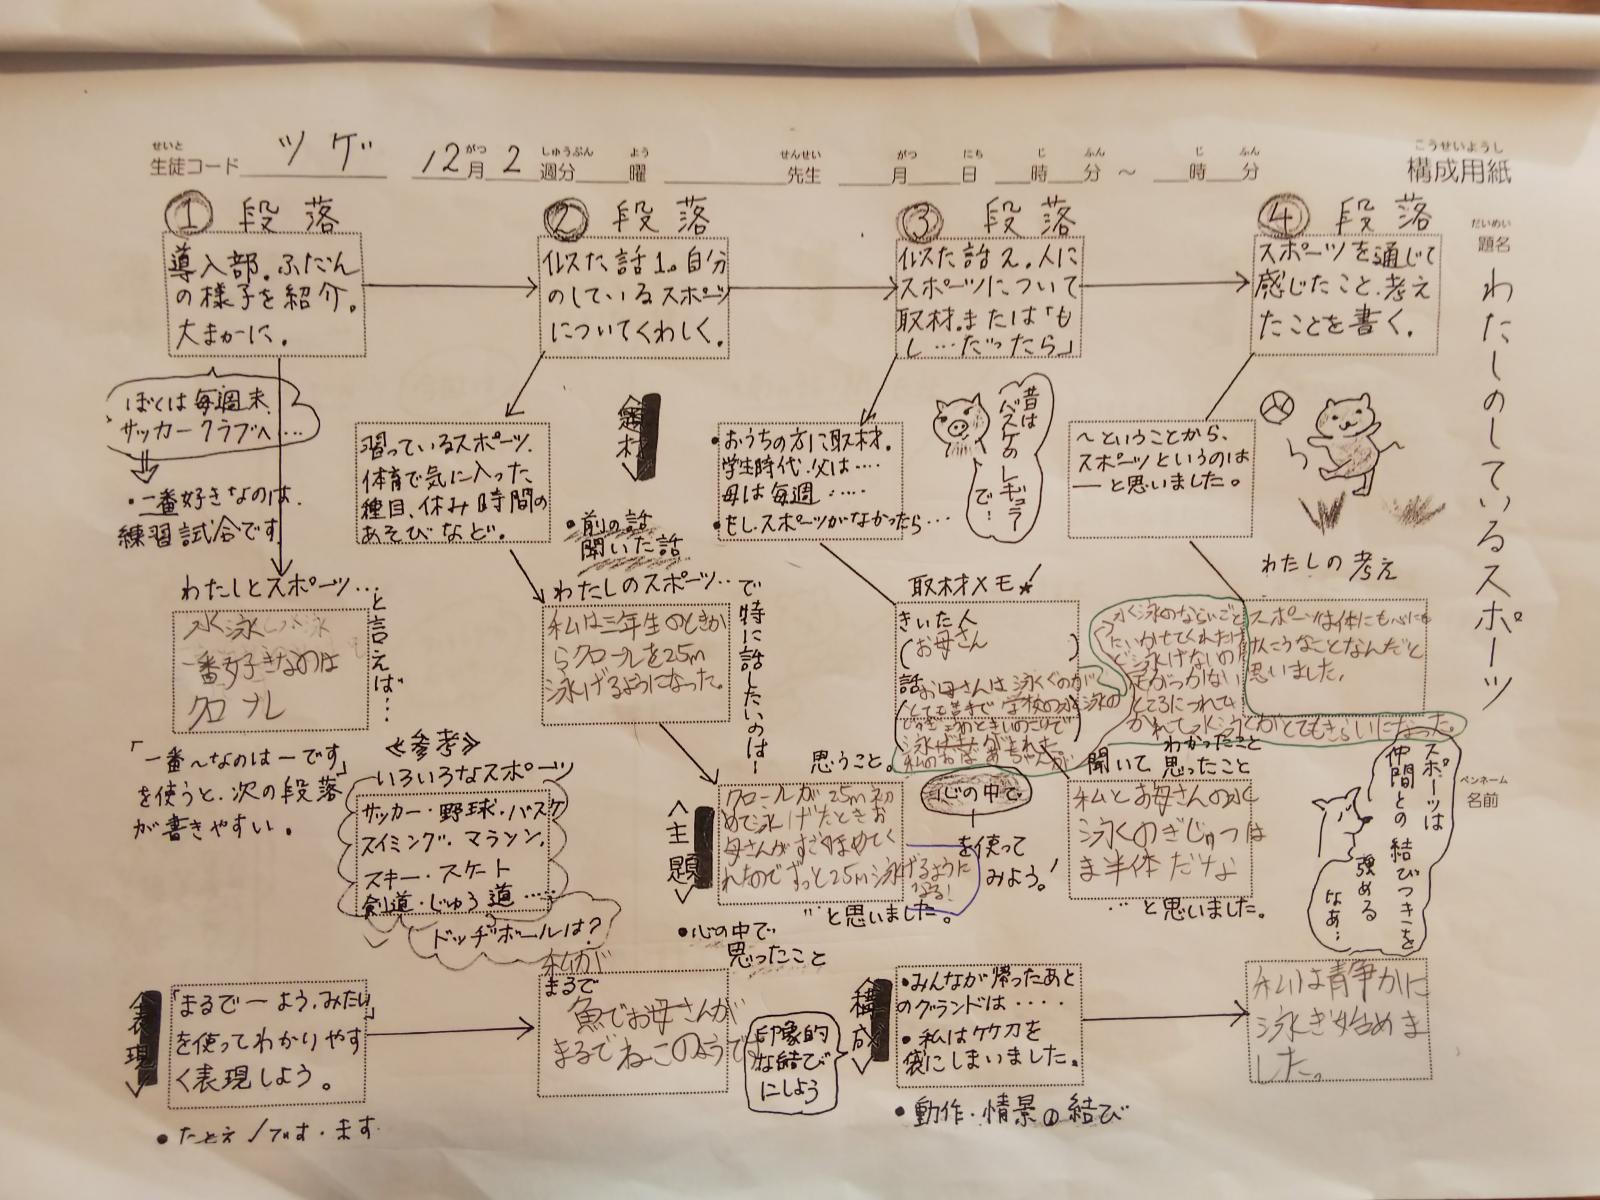 構成用紙
こうせいようし
せいと
生徒コード ツゲ
12月2週分 曜 先生 月 日 時 分 ～ 時 分
がつ しゅうぶん よう せんせい がつ にち じ ふん じ ふん
だいめい
題名
わたしのしているスポーツ
ペンネーム
名前
① 段落
導入部。ふだん
の様子を紹介。
大まかに。
ぼくは毎週末、
サッカークラブへ…
・一番好きなのは、
練習試合です
わたしとスポーツ…
と言えば…
水泳
一番好きなのは
クロール
「一番～なのは－です」
を使うと、次の段落
が書きやすい。
② 段落
似た話1。自分
のしているスポーツ
についてくわしく。
習っているスポーツ、
体育で気に入った
種目、休み時間の
あそびなど。
題材
・前の話
聞いた話
わたしのスポーツ…
で特に話したいのは～
私は三年生のときか
らクロールを25m
泳げるようになった。
《参考》
いろいろなスポーツ
サッカー・野球・バスケ
スイミング・マラソン、
スキー・スケート
剣道・じゅう道……
ドッヂボールは？
主題
・心の中で
思ったこと
思うこと。
クロールが25m初
めて泳げたときお
母さんがすごくほめてく
れたのでずっと25m泳げるように
…と思いました。
心の中で
を使って
みよう！
③ 段落
似た話2、人に
スポーツについて
取材。または「も
し…だったら」
・おうちの方に取材。
学生時代、父は‥‥
母は毎週‥‥
・もし、スポーツがなかったら…
昔は
バスケのレギュラー
で…
取材メモ
きいた人
(お母さん )
話
お母さんは泳ぐのが
とても苦手で学校の水泳の
水泳のならいごと
たいかせてくれたけ
ど泳げないの
足がつかない
ところにつれてい
かれて水泳がとてもきらいになった。
聞いて わかったこと
思ったこと
私とお母さんの水
泳くのぎじゅつは
ま半体だな
…と思いました。
④ 段落
スポーツを通じて
感じたこと、考え
たことを書く。
～ということから、
スポーツというのは
－と思いました。
わたしの考え
スポーツは体にも心にも
思いました。
スポーツは
仲間との結びつきを
強める
なぁ…
表現
「まるで－よう、みたい」
を使ってわかりやす
く表現しよう。
・たとえ／です・ます
私が
まるで
魚でお母さんが
まるでねこのようで
印象的
な結び
にしよう
構成
・みんなが帰ったあと
のグランドは‥‥
・私はケケ刀を
袋にしまいました。
・動作・情景の結び
私は静かに
泳ぎ始めま
した。